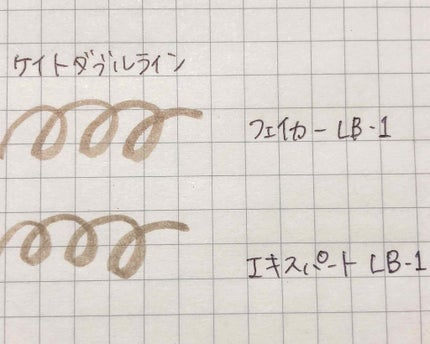 ケイトダブルライン
フェイカー LB-1
エキスパート LB-1